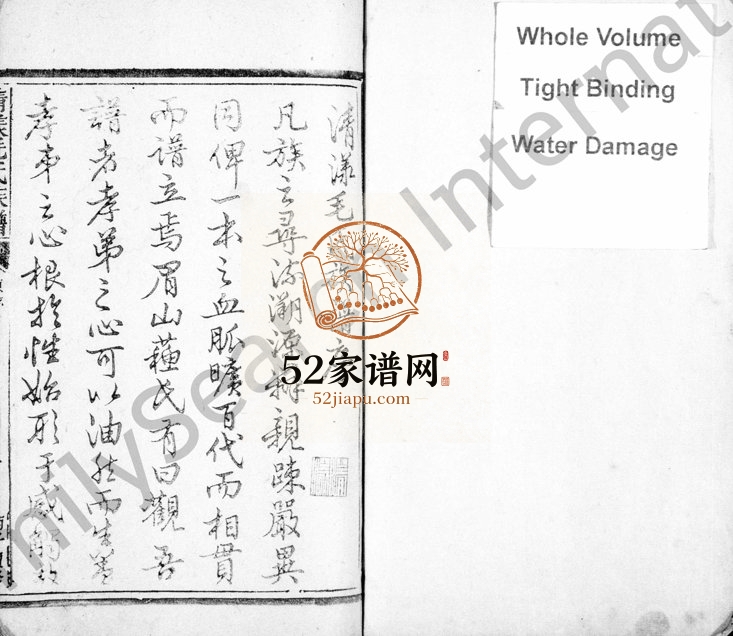 清漾毛
凡族之尋流溯源辨親疎嚴異
同俾一本之血脈曠百代而相貫
而譜立焉眉山蘓氏有曰觀吾
譜者孝弟之心可以油然而生蓋
孝弟之心根於性始形于感觸
Whole Volume
Tight Binding
Water Damage
52家谱网
52jiapu.com
milySearch Internat